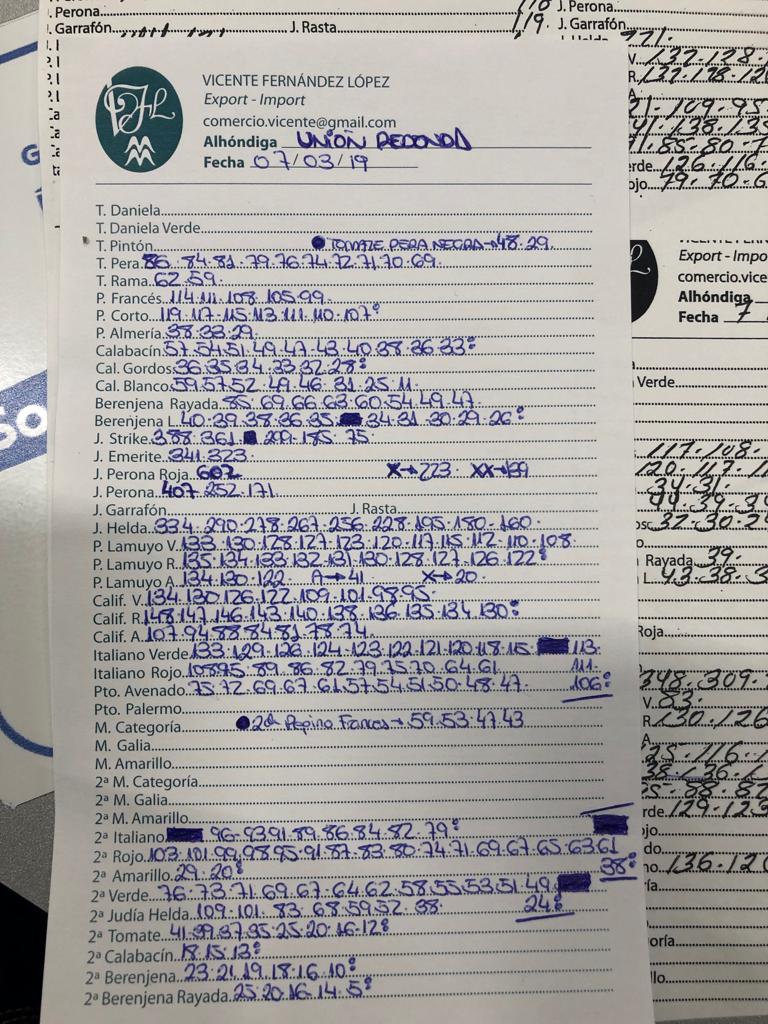 . Perona
. Garrafón J. Rasta
J. Perona
119. J. Garrafón
VICENTE FERNÁNDEZ LÓPEZ
Export - Import
comercio.vicente@gmail.com
Alhóndiga UNIÓN REDONDA
Fecha 07/03/19
T. Daniela
T. Daniela Verde
T. Pintón TOMATE PERA NEGRA→48.29
T. Pera 86.84.81.79.76.74.72.71.70.69
T. Rama 62.59
P. Francés 114.111.108.105.99
P. Corto 119.117.115.113.111.110.107
P. Almería 38.33.29
Calabacín 57.54.51.49.47.43.40.38.36.33
Cal. Gordos 36.35.34.33.32.28
Cal. Blanco 59.57.52.49.46.31.25.11
Berenjena Rayada 85.69.66.63.60.54.49.47
Berenjena L. 40.39.38.36.35 34.31.30.29.26
J. Strike 388.361 209.185.75
J. Emerite 341.323
J. Perona Roja 602 X→223 XX→139
J. Perona 407.252.171
J. Garrafón J. Rasta
J. Helda 334.290.278.267.256.228.195.180.160
P. Lamuyo V. 133.130.128.127.123.120.117.115.112.110.108
P. Lamuyo R. 135.134.133.132.131.130.128.127.126.122
P. Lamuyo A. 134.130.122 A→41 X→20
Calif. V. 134.130.126.122.109.101.98.95
Calif. R. 148.147.146.143.140.138.136.135.134.130
Calif. A. 107.94.88.84.81.78.74
Italiano Verde 133.129.126.124.123.122.121.120.118.115 113
Italiano Rojo 108.95.89.86.82.79.75.70.64.61 111
Pto. Avenado 75.72.69.67.61.57.54.51.50.48.47 106
Pto. Palermo
M. Categoría 2da Pepino Frances→59.53.47.43
M. Galia
M. Amarillo
2ª M. Categoría
2ª M. Galia
2ª M. Amarillo
2ª Italiano 96.93.91.89.86.84.82.79
2ª Rojo 103.101.99.98.95.91.87.83.80.74.71.69.67.65.63.61
2ª Amarillo 29.20 38
2ª Verde 76.73.71.69.67.64.62.58.55.53.51.49
2ª Judía Helda 109.101.83.68.59.52.38 24
2ª Tomate 41.39.37.35.25.20.16.12
2ª Calabacín 18.15.13
2ª Berenjena 23.21.19.18.16.10
2ª Berenjena Rayada 25.20.16.14.5
Export - Impo
comercio.vice
Alhóndiga
Fecha 7
Verde
Rayada 39.
L. 43.38.3
Roja
348.309.
V. 83.
R. 130.126
rde 129.123
136.12